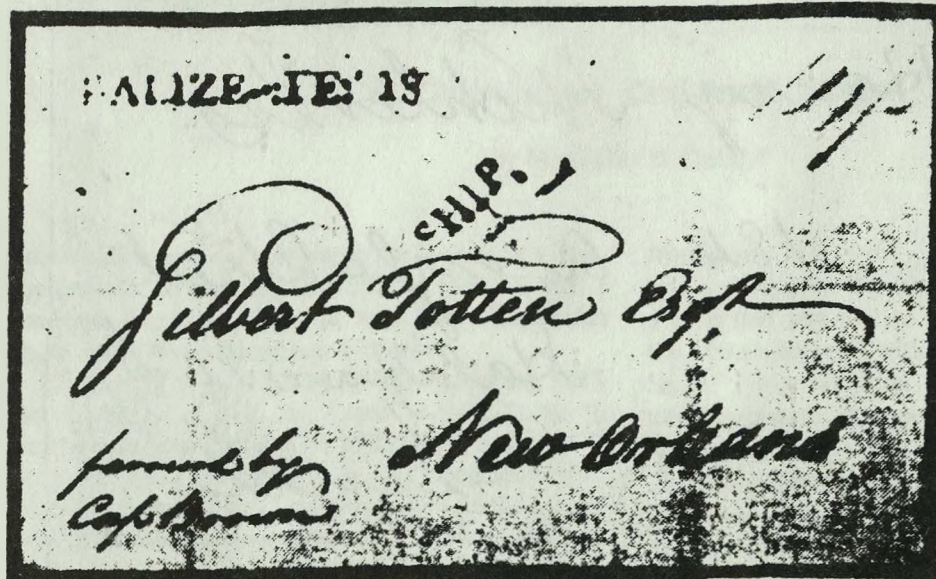 BALIZE FEB 18
SHIP.
Gilbert Totten Esqr
New Orleans
by
Cap Brown